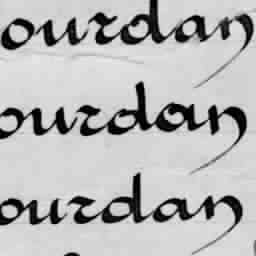 ourdan
ourdan
ourdan